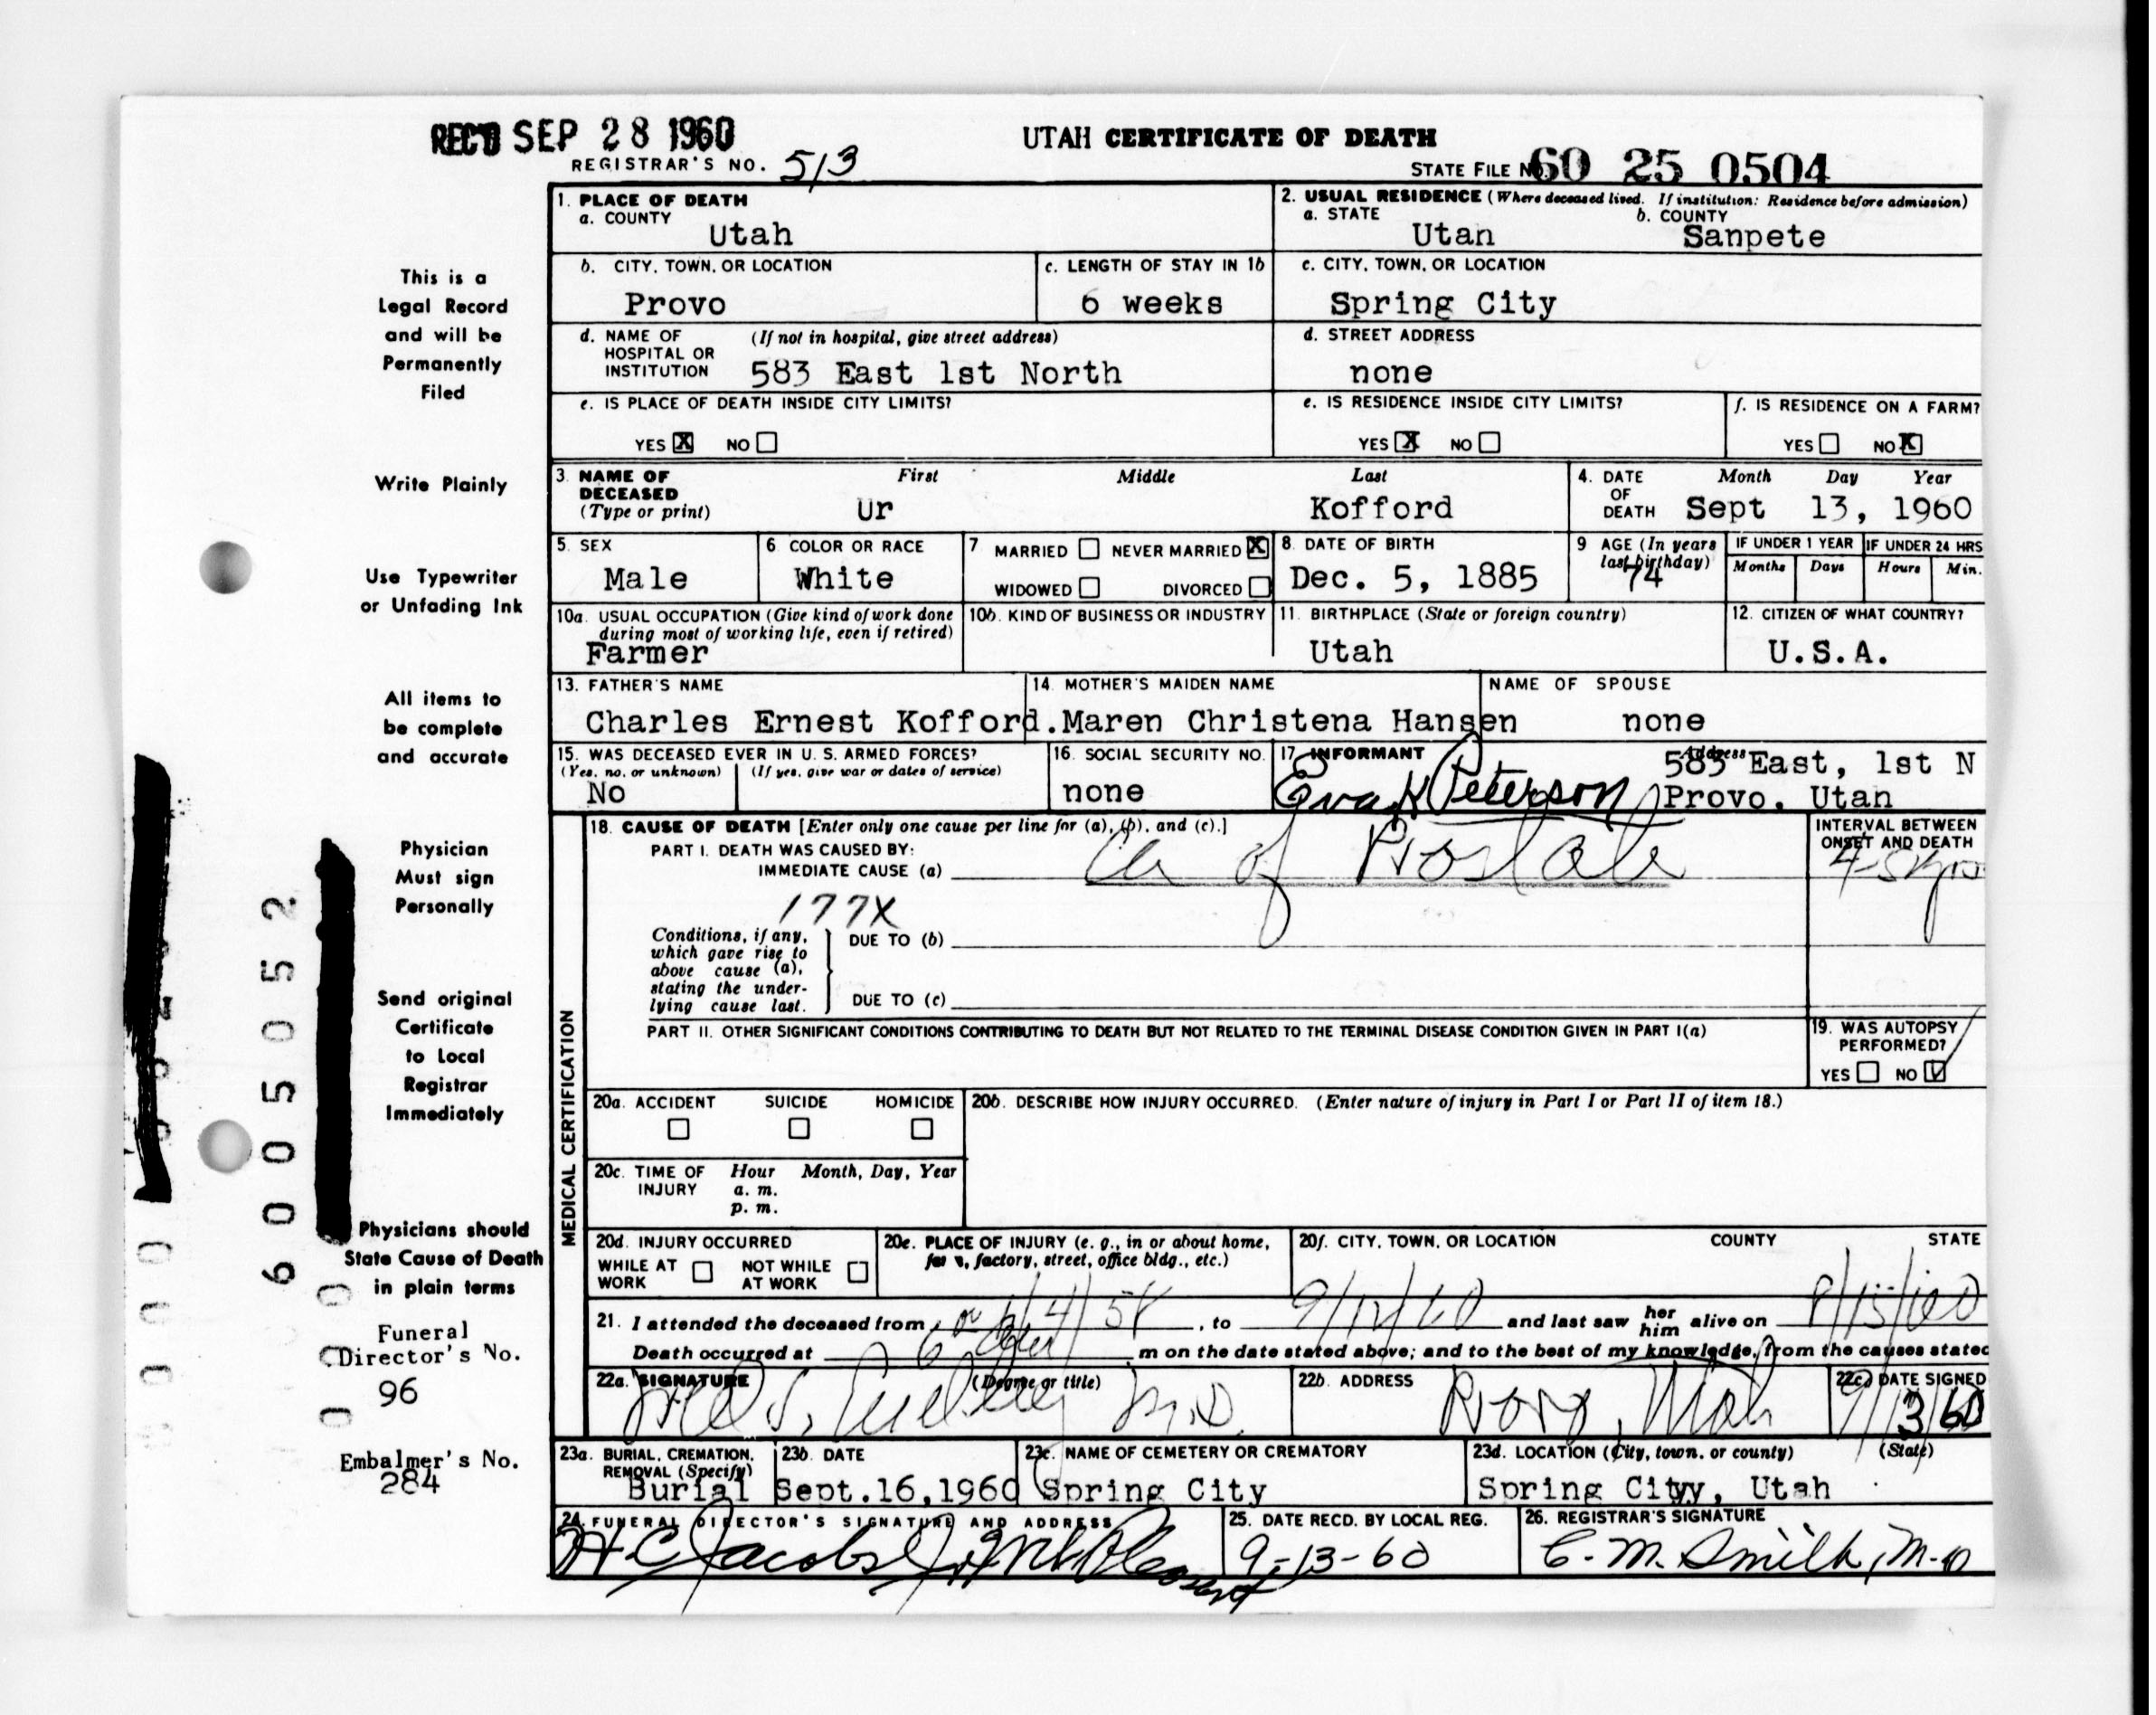 REC'D SEP 28 1960
REGISTRAR'S NO. 513
UTAH CERTIFICATE OF DEATH
STATE FILE NO. 60 25 0504
This is a
Legal Record
and will be
Permanently
Filed
Write Plainly
Use Typewriter
or Unfading Ink
All items to
be complete
and accurate
Physician
Must sign
Personally
Send original
Certificate
to Local
Registrar
Immediately
Physicians should
State Cause of Death
in plain terms
Funeral
Director's No.
96
Embalmer's No.
284
6005052
1. PLACE OF DEATH
a. COUNTY
Utah
2. USUAL RESIDENCE (Where deceased lived. If institution: Residence before admission)
a. STATE b. COUNTY
Utan Sanpete
b. CITY, TOWN, OR LOCATION
Provo
c. LENGTH OF STAY IN 1b
6 weeks
c. CITY, TOWN, OR LOCATION
Spring City
d. NAME OF HOSPITAL OR INSTITUTION (If not in hospital, give street address)
583 East 1st North
d. STREET ADDRESS
none
e. IS PLACE OF DEATH INSIDE CITY LIMITS?
YES X NO
e. IS RESIDENCE INSIDE CITY LIMITS?
YES X NO
f. IS RESIDENCE ON A FARM?
YES NO X
3. NAME OF DECEASED (Type or print) First Middle Last
Ur Kofford
4. DATE OF DEATH Month Day Year
Sept 13, 1960
5. SEX
Male
6. COLOR OR RACE
White
7. MARRIED NEVER MARRIED X
WIDOWED DIVORCED
8. DATE OF BIRTH
Dec. 5, 1885
9. AGE (In years last birthday)
74
IF UNDER 1 YEAR IF UNDER 24 HRS
Months Days Hours Min.
10a. USUAL OCCUPATION (Give kind of work done during most of working life, even if retired)
Farmer
10b. KIND OF BUSINESS OR INDUSTRY
11. BIRTHPLACE (State or foreign country)
Utah
12. CITIZEN OF WHAT COUNTRY?
U.S.A.
13. FATHER'S NAME
Charles Ernest Kofford.
14. MOTHER'S MAIDEN NAME
Maren Christena Hansen
NAME OF SPOUSE
none
15. WAS DECEASED EVER IN U. S. ARMED FORCES?
(Yes, no, or unknown) (If yes, give war or dates of service)
No
16. SOCIAL SECURITY NO.
none
17. INFORMANT Address
Eva K Peterson
583 East, 1st N
Provo. Utan
MEDICAL CERTIFICATION
18. CAUSE OF DEATH [Enter only one cause per line for (a), (b), and (c).]
PART I. DEATH WAS CAUSED BY:
IMMEDIATE CAUSE (a) Ca of Prostate
INTERVAL BETWEEN ONSET AND DEATH
4-5 yrs
177X
Conditions, if any, which gave rise to above cause (a), stating the underlying cause last.
DUE TO (b)
DUE TO (c)
PART II. OTHER SIGNIFICANT CONDITIONS CONTRIBUTING TO DEATH BUT NOT RELATED TO THE TERMINAL DISEASE CONDITION GIVEN IN PART I(a)
19. WAS AUTOPSY PERFORMED?
YES NO
20a. ACCIDENT SUICIDE HOMICIDE
20b. DESCRIBE HOW INJURY OCCURRED. (Enter nature of injury in Part I or Part II of item 18.)
20c. TIME OF INJURY Hour Month, Day, Year
a. m.
p. m.
20d. INJURY OCCURRED
WHILE AT WORK NOT WHILE AT WORK
20e. PLACE OF INJURY (e. g., in or about home, farm, factory, street, office bldg., etc.)
20f. CITY, TOWN, OR LOCATION COUNTY STATE
21. I attended the deceased from , to 9/12/60 and last saw her him alive on 8/15/60
Death occurred at 6 m on the date stated above; and to the best of my knowledge, from the causes stated
22a. SIGNATURE (Degree or title)
M.D.
22b. ADDRESS
Provo, Utah
22c. DATE SIGNED
9/13/60
23a. BURIAL, CREMATION, REMOVAL (Specify)
Burial
23b. DATE
Sept.16,1960
23c. NAME OF CEMETERY OR CREMATORY
Spring City
23d. LOCATION (City, town, or county) (State)
Spring Cityy, Utah
24. FUNERAL DIRECTOR'S SIGNATURE AND ADDRESS
H C Jacobs Mt Pleasant
25. DATE RECD. BY LOCAL REG.
9-13-60
26. REGISTRAR'S SIGNATURE
C. M. Smith, M-D